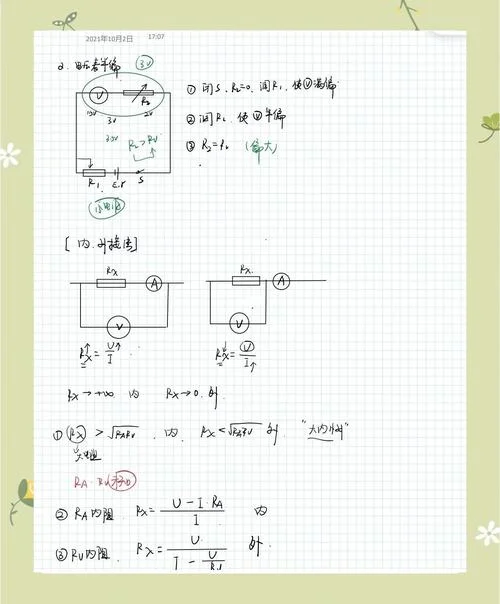 2021年10月2日 17:07
2. 电压表半偏 3V
V R₂
3V 2V
R₂>RV
① 闭S, R₂=0, 调R₁, 使Ⓥ满偏
② 调R₂, 使Ⓥ半偏
③ R₂=RV (偏大)
R₁ E.r S
[内.外接法]
Rx A Rx A
V V
Rx↑=U↑/I Rx↓=U/I↑
Rx→+∞ 内 Rx→0 外
① Rx > √RARV, 内, Rx<√RARV 外, "大内小外"
大电阻
RA. RV
② RA内阻 Rx=(U-I·RA)/I 内
③ RV内阻 Rx=U/(I-U/RV) 外